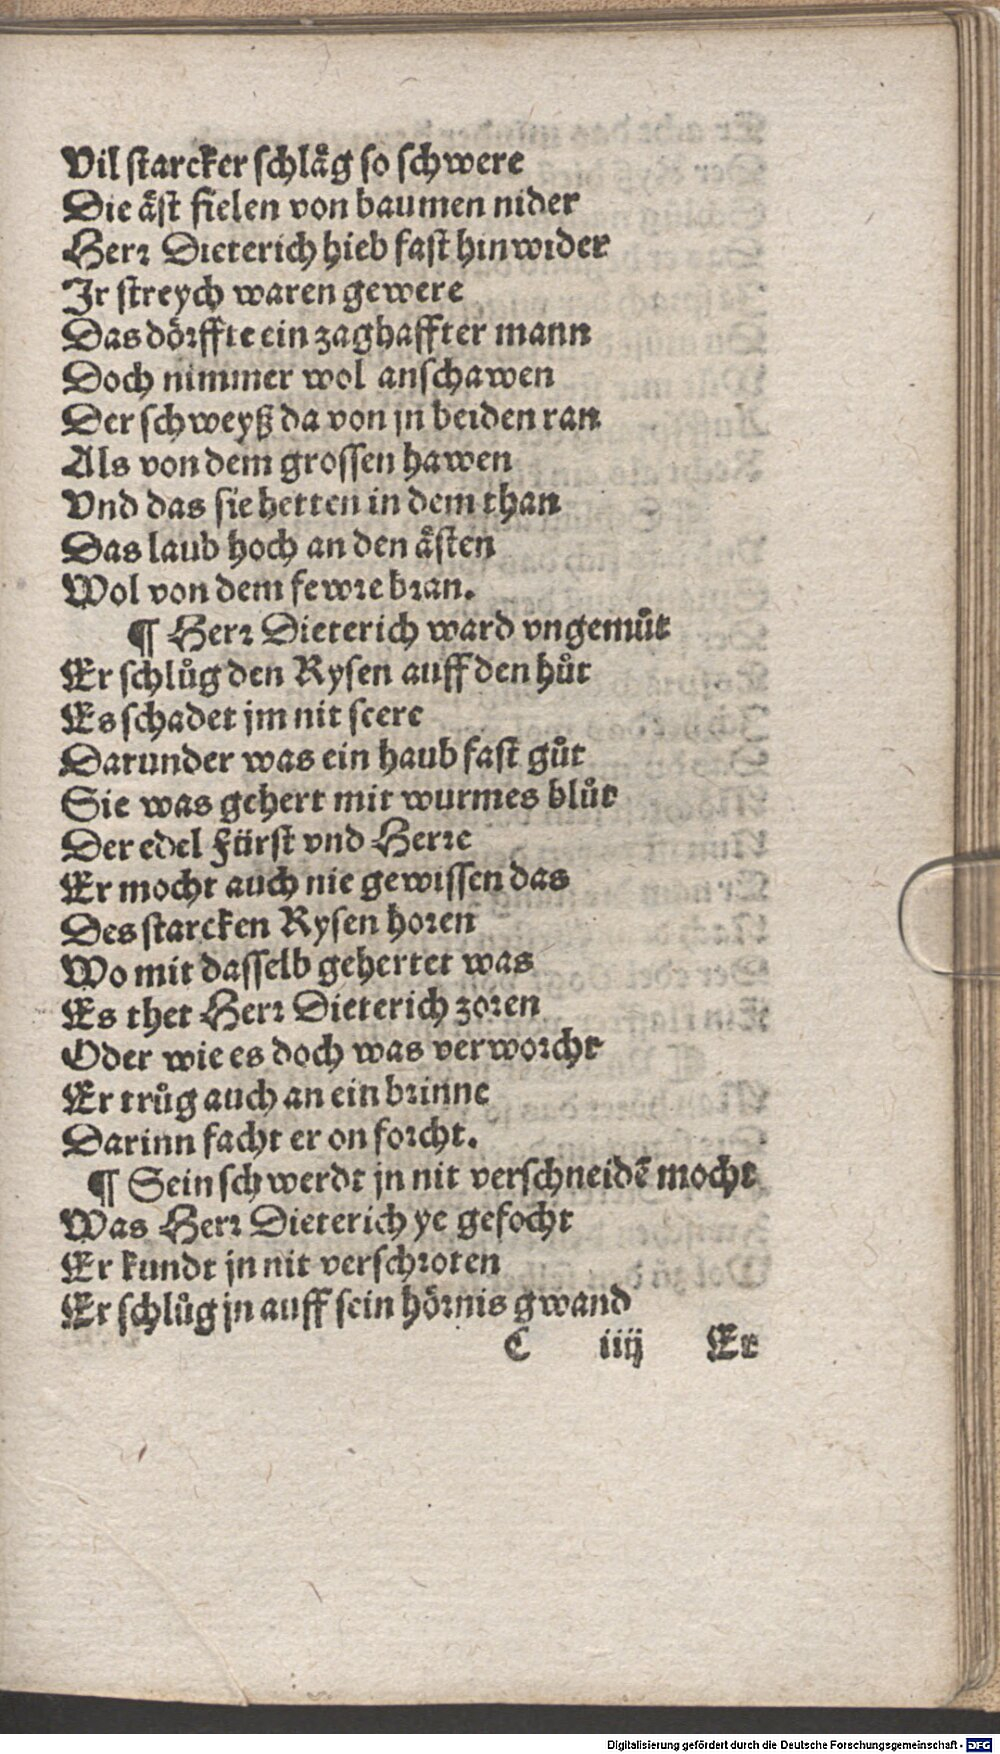 Vil starcker schlaͤg so schwere
Die aͤst fielen von baumen nider
Herꝛ Dieterich hieb fast hin wider
Jr streych waren gewere
Das doͤꝛffte ein zaghaffter mann
Doch nimmer wol anschawen
Der schweyß da von jn beiden ran
Als von dem grossen hawen
Vnd das sie hetten in dem than
Das laub hoch an den aͤsten
Wol von dem fewꝛe bꝛan.
¶ Herꝛ Dieterich ward vngemuͦt
Er schluͦg den Rysen auff den huͦt
Es schadet jm nit seere
Darunder was ein haub fast guͦt
Sie was gehert mit wurmes bluͦt
Der edel Fürst vnd Herꝛe
Er mocht auch nie gewissen das
Des starcken Rysen hoꝛen
Wo mit dasselb gehertet was
Es thet Herꝛ Dieterich zoꝛen
Oder wie es doch was verwoꝛcht
Er truͦg auch an ein bꝛinne
Darinn facht er on foꝛcht.
¶ Sein schwerdt jn nit verschneidē mocht
Was Herꝛ Dieterich ye gefocht
Er kundt jn nit verschꝛoten
Er schluͦg jn auff sein hoͤꝛnis gwand
C iiij Er
Digitalisierung gefördert durch die Deutsche Forschungsgemeinschaft - DFG